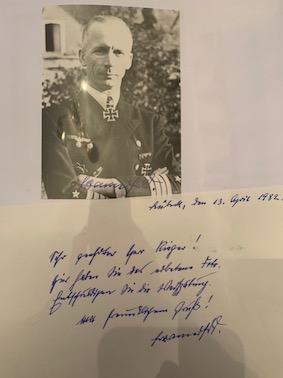 Lübeck, den 13. April 1982.
Sehr geehrter Herr Rieger!
Hier haben Sie das erbetene Foto.
Entschuldigen Sie die Verspätung.
Mit freundlichem Gruß!